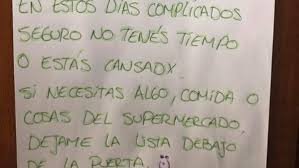 EN ESTOS DÍAS COMPLICADOS
SEGURO NO TENÉS TIEMPO
O ESTÁS CANSADX.
SI NECESITAS ALGO, COMIDA O
COSAS DEL SUPERMERCADO,
DEJAME LA LISTA DEBAJO
DE LA PUERTA.